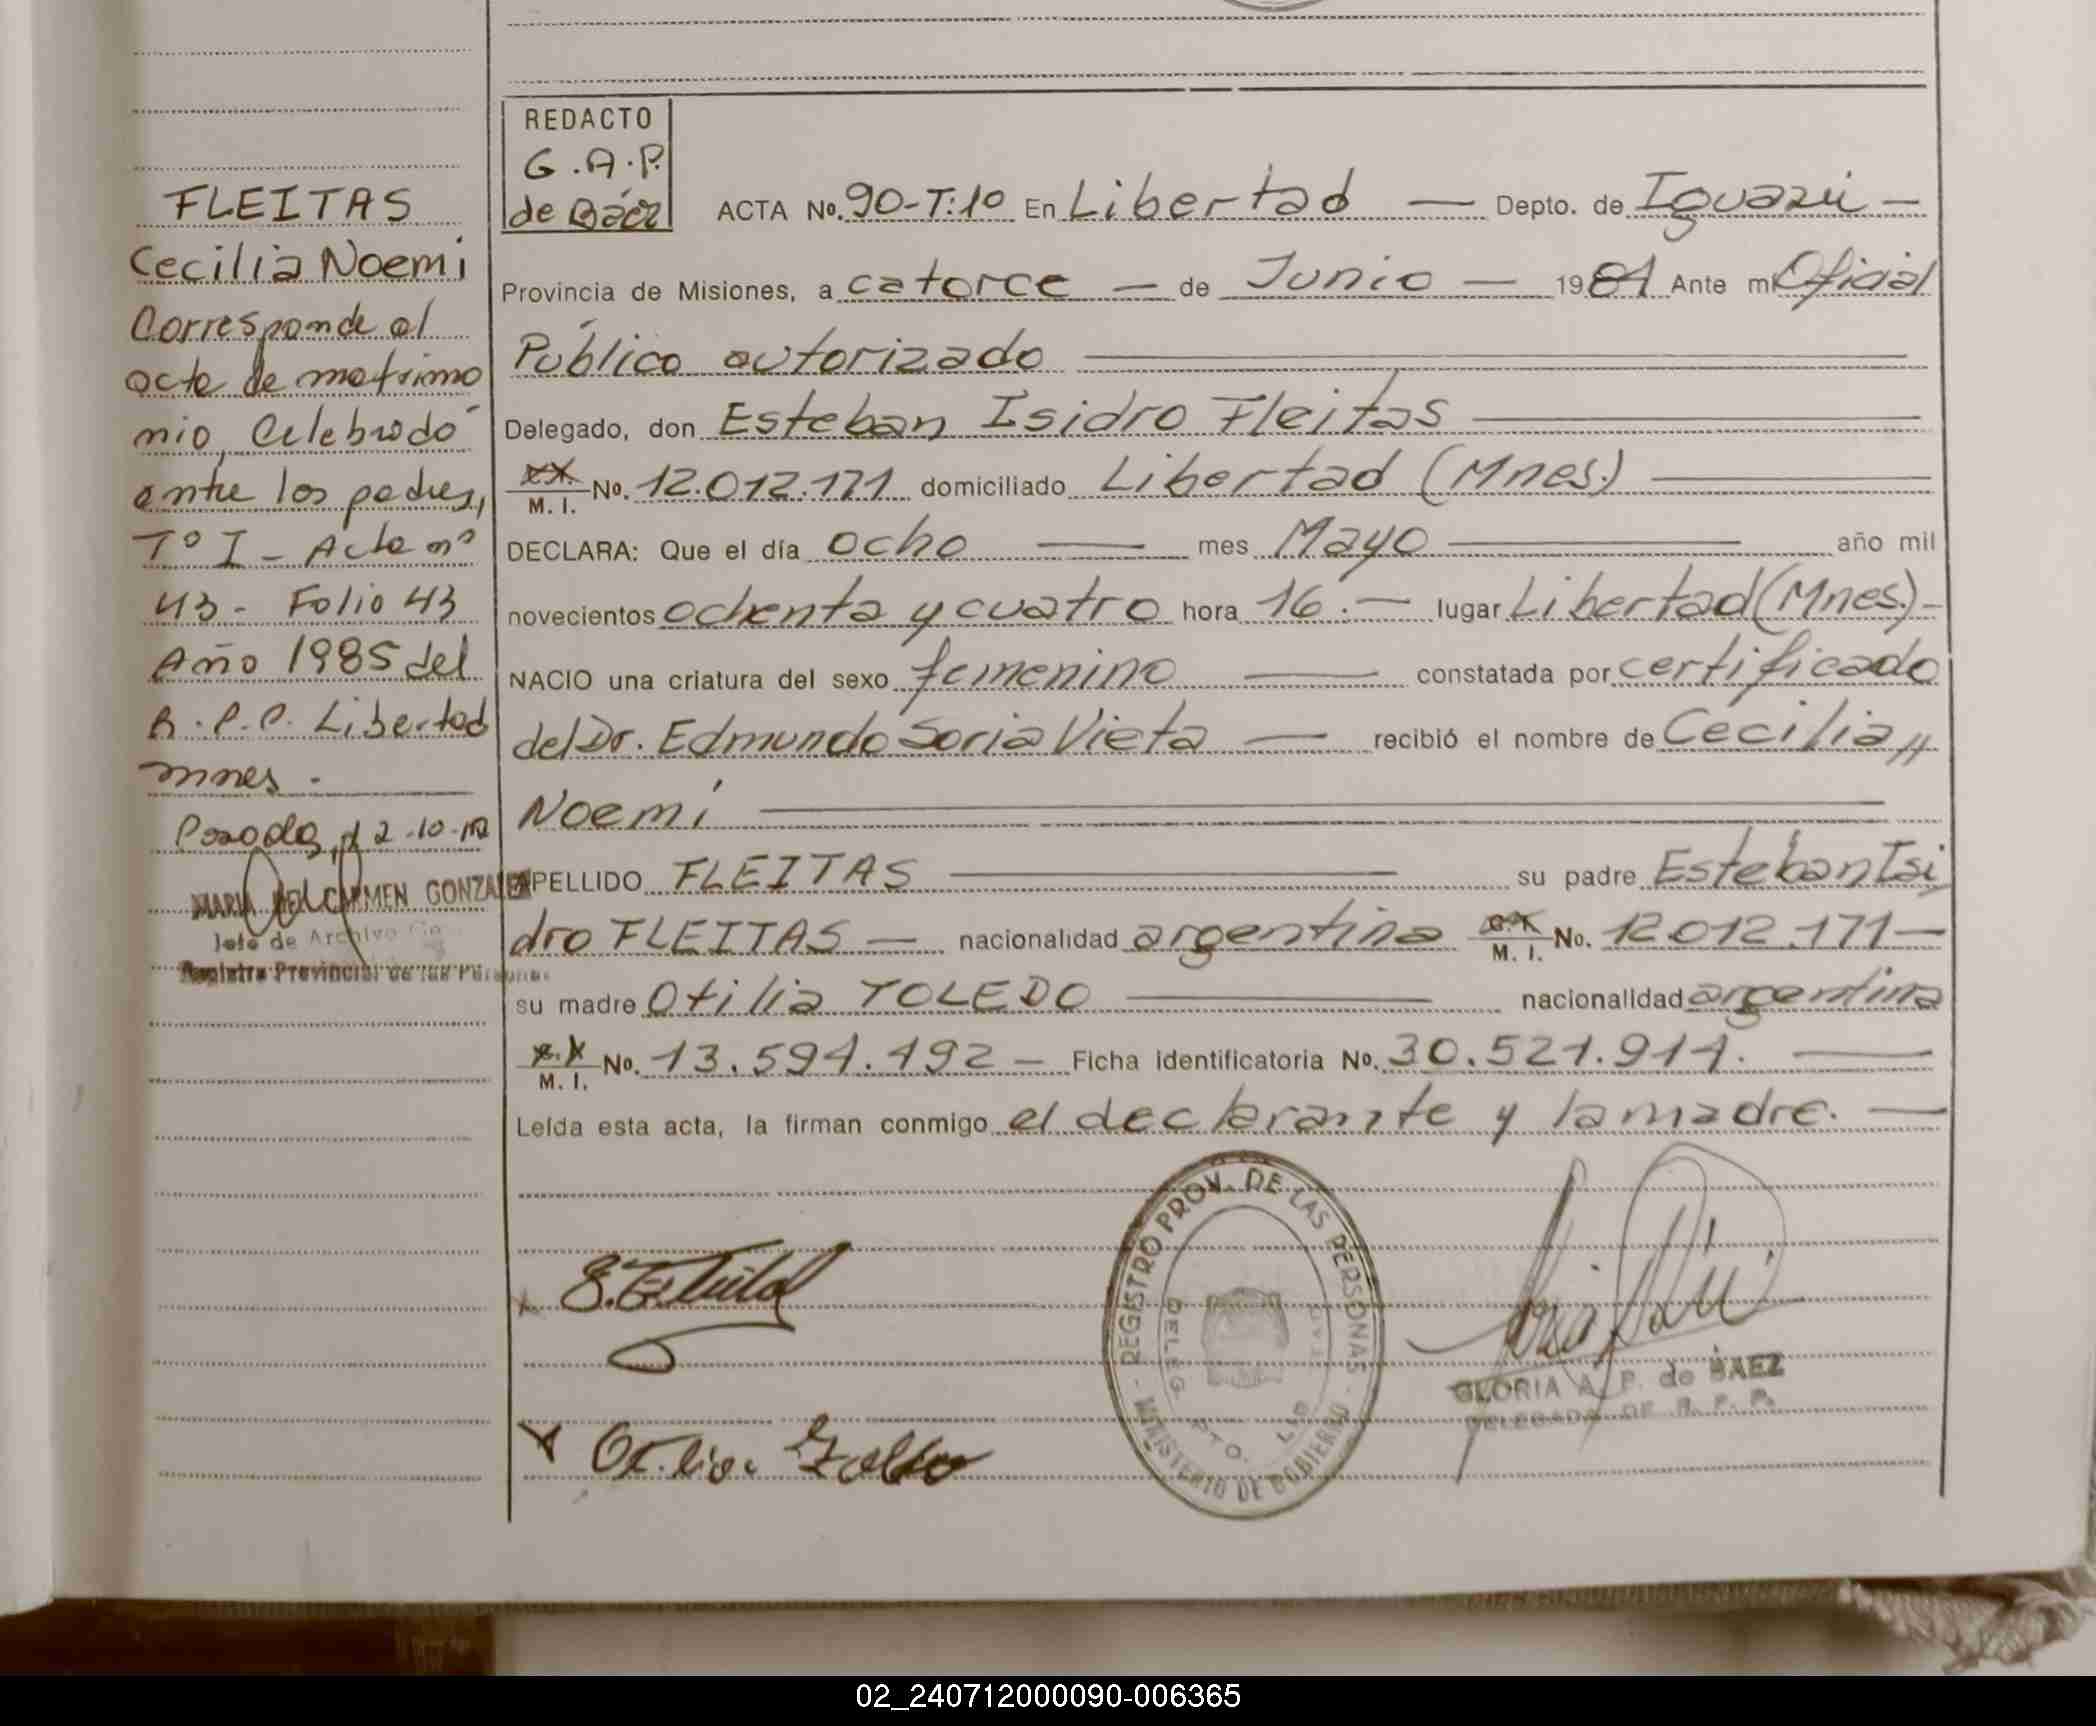 FLEITAS
Cecilia Noemi
Corresponde al
acta de matrimo
nio, Celebrado
entre los padres,
Tº I - Acta nº
43 - Folio 43
Año 1985 del
R.P.P. Libertad
mnes.
Posadas, 2-10-
MARIA DEL CARMEN GONZALEZ
Jefe de Archivo
Registro Provincial de las Personas
REDACTO
G.A.P.
de Báez
ACTA No. 90-T:1º En Libertad — Depto. de Iguazú —
Provincia de Misiones, a catorce — de Junio — 1984 Ante mi Oficial
Público autorizado
Delegado, don Esteban Isidro Fleitas
M. I. No. 12.012.171 domiciliado Libertad (Mnes.)
DECLARA: Que el día ocho — mes Mayo — año mil
novecientos ochenta y cuatro hora 16.— lugar Libertad (Mnes.)-
NACIO una criatura del sexo femenino — constatada por certificado
del Dr. Edmundo Soria Vieta — recibió el nombre de Cecilia,,
Noemí
APELLIDO FLEITAS — su padre Esteban Isi
dro FLEITAS — nacionalidad argentina M. I. No. 12.012.171—
su madre Otilia TOLEDO — nacionalidad argentina
M. I. No. 13.594.492 — Ficha identificatoria No. 30.521.914. —
Leída esta acta, la firman conmigo el declarante y la madre. —
REGISTRO PROV. DE LAS PERSONAS - MINISTERIO DE GOBIERNO -
GLORIA A. P. de BAEZ
DELEGADA DE R. P. P.
02_240712000090-006365